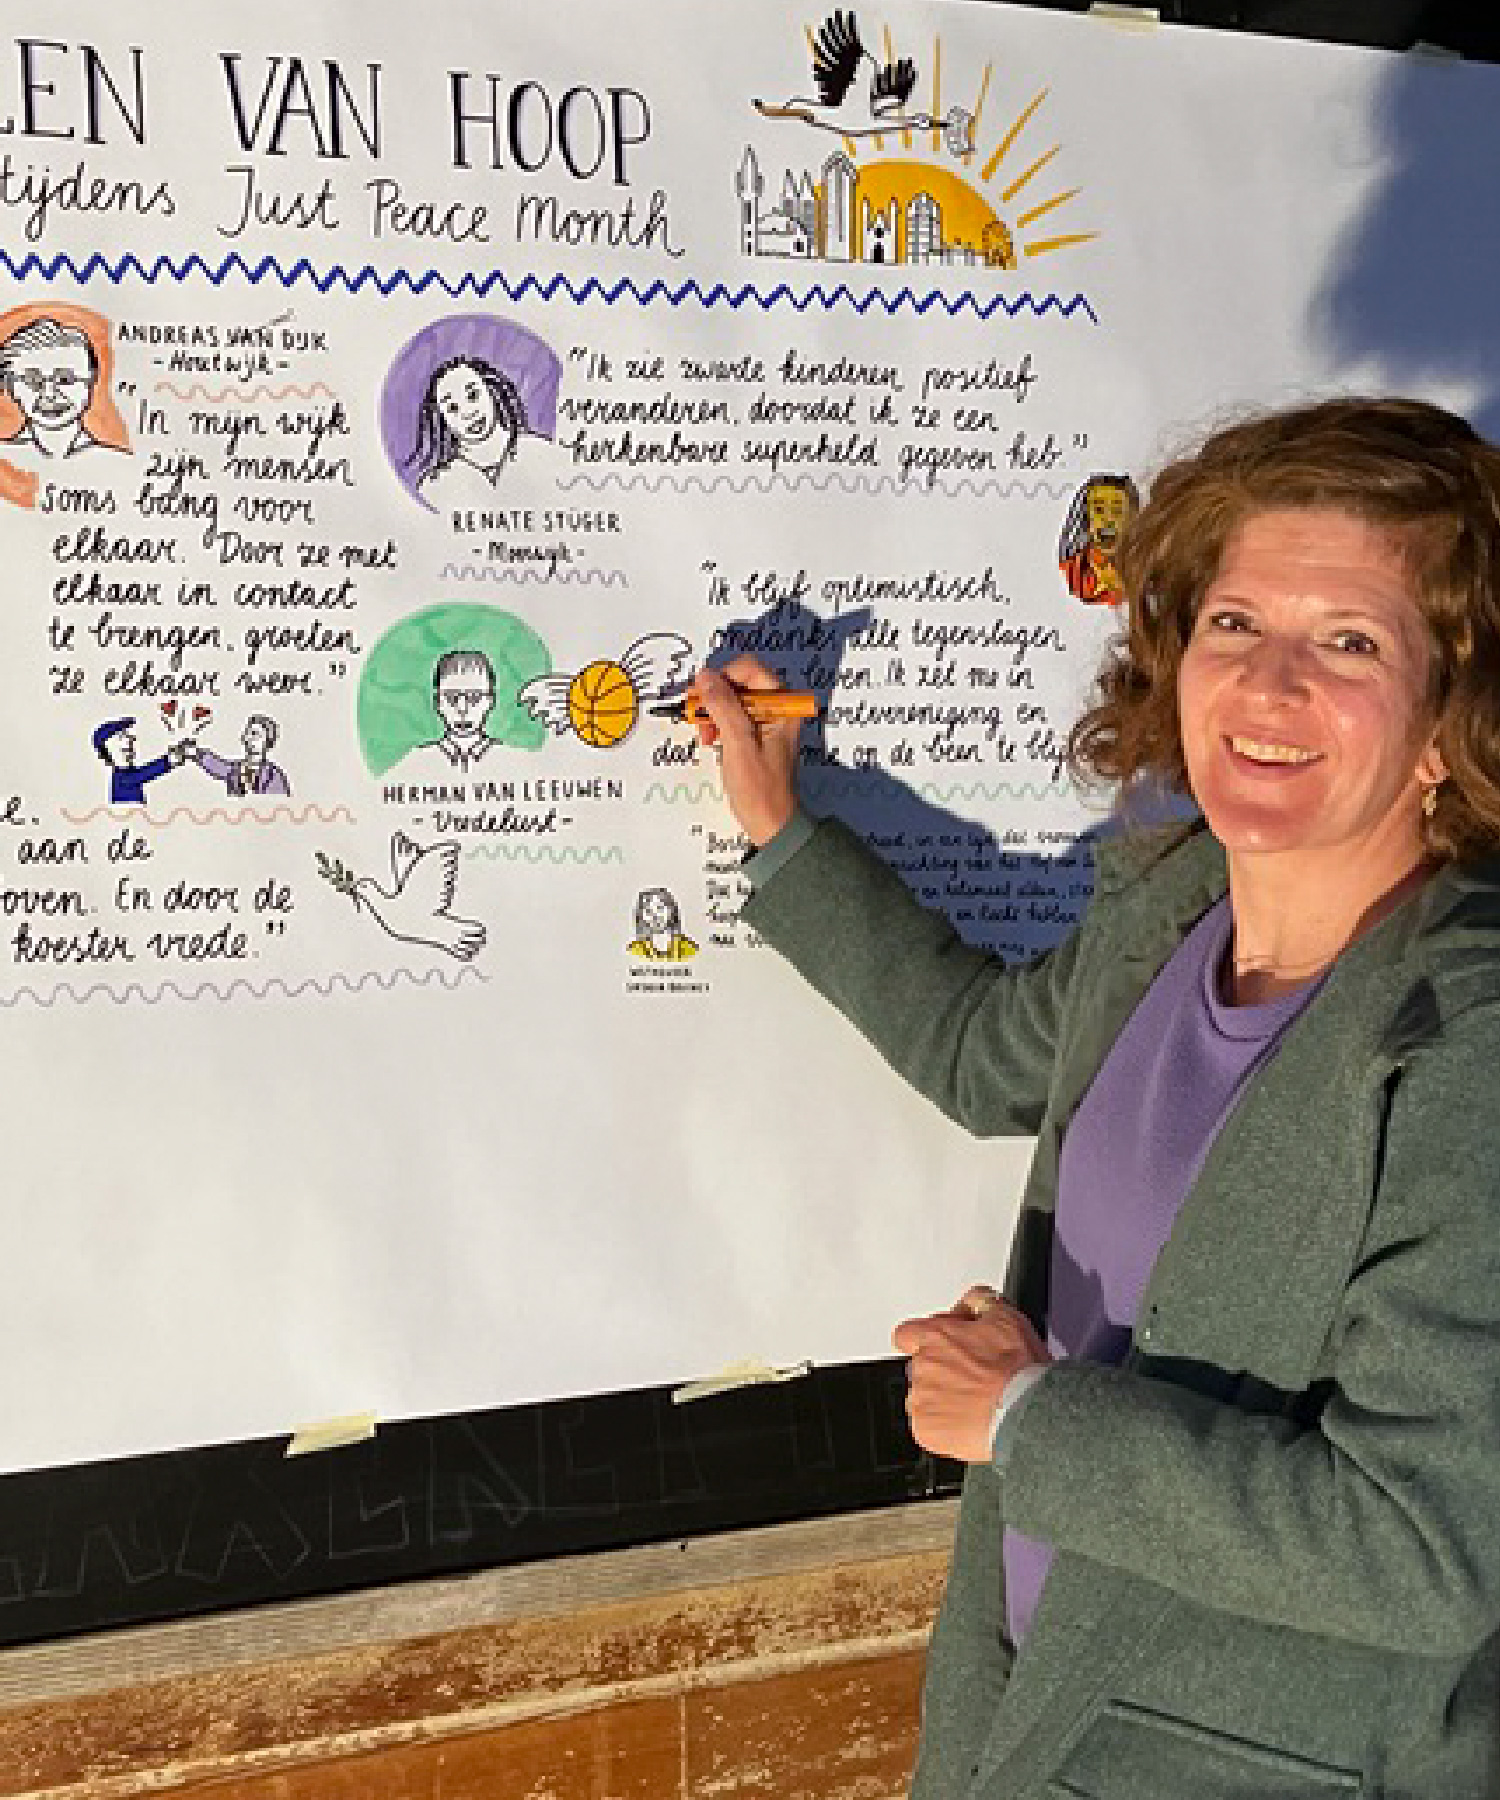 LEN VAN HOOP
tijdens Just Peace Month
ANDREAS VAN DIJK
- Houtwijk -
"In mijn wijk
zijn mensen
soms bang voor
elkaar. Door ze met
elkaar in contact
te brengen, groeten
ze elkaar weer."
"Ik zie zwarte kinderen positief
veranderen, doordat ik ze een
herkenbare superheld gegeven heb."
RENATE STÜGER
- Morswijk -
"Ik blijf optimistisch,
ondanks alle tegenslagen
leven. Ik zet me in
ortvereniging en
dat me op de been te blij
HERMAN VAN LEEUWEN
- Vredelust -
e.
aan de
oven. En door de
koester vrede."